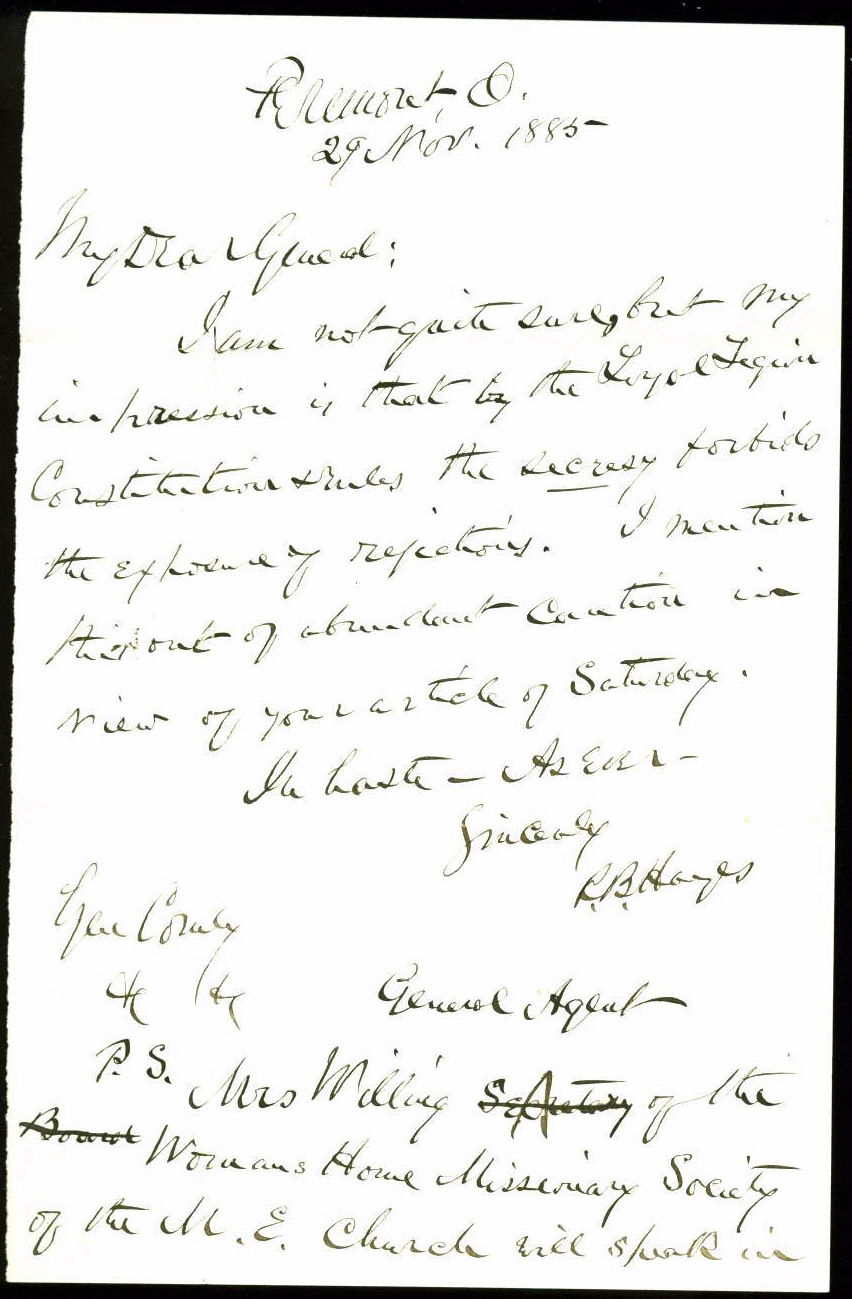 Fremont, O.
29 Nov. 1885
My Dear General:
I am not quite sure, but my
impression is that by the Loyal Legion
Constitution & rules the secresy forbids
the exposure of rejections. I mention
this out of abundant caution in
view of your article of Saturday.
In haste - As Ever -
Sincerely
R. B. Hayes
Gen Comly
&c &c
General Agent
P. S. Mrs Willing Secretary of the
Board Womans Home Missionary Society
of the M. E. Church will speak in